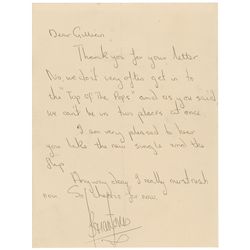 Dear Gillian
Thank you for your letter
No, we don't very often get in to
the "Top of the Pops" and as you said
we can't be in two places at once.
I am very pleased to hear
you like the new single and the
flip.
Anyway okay I really must rush
now. So thanks for now.
Brian Jones